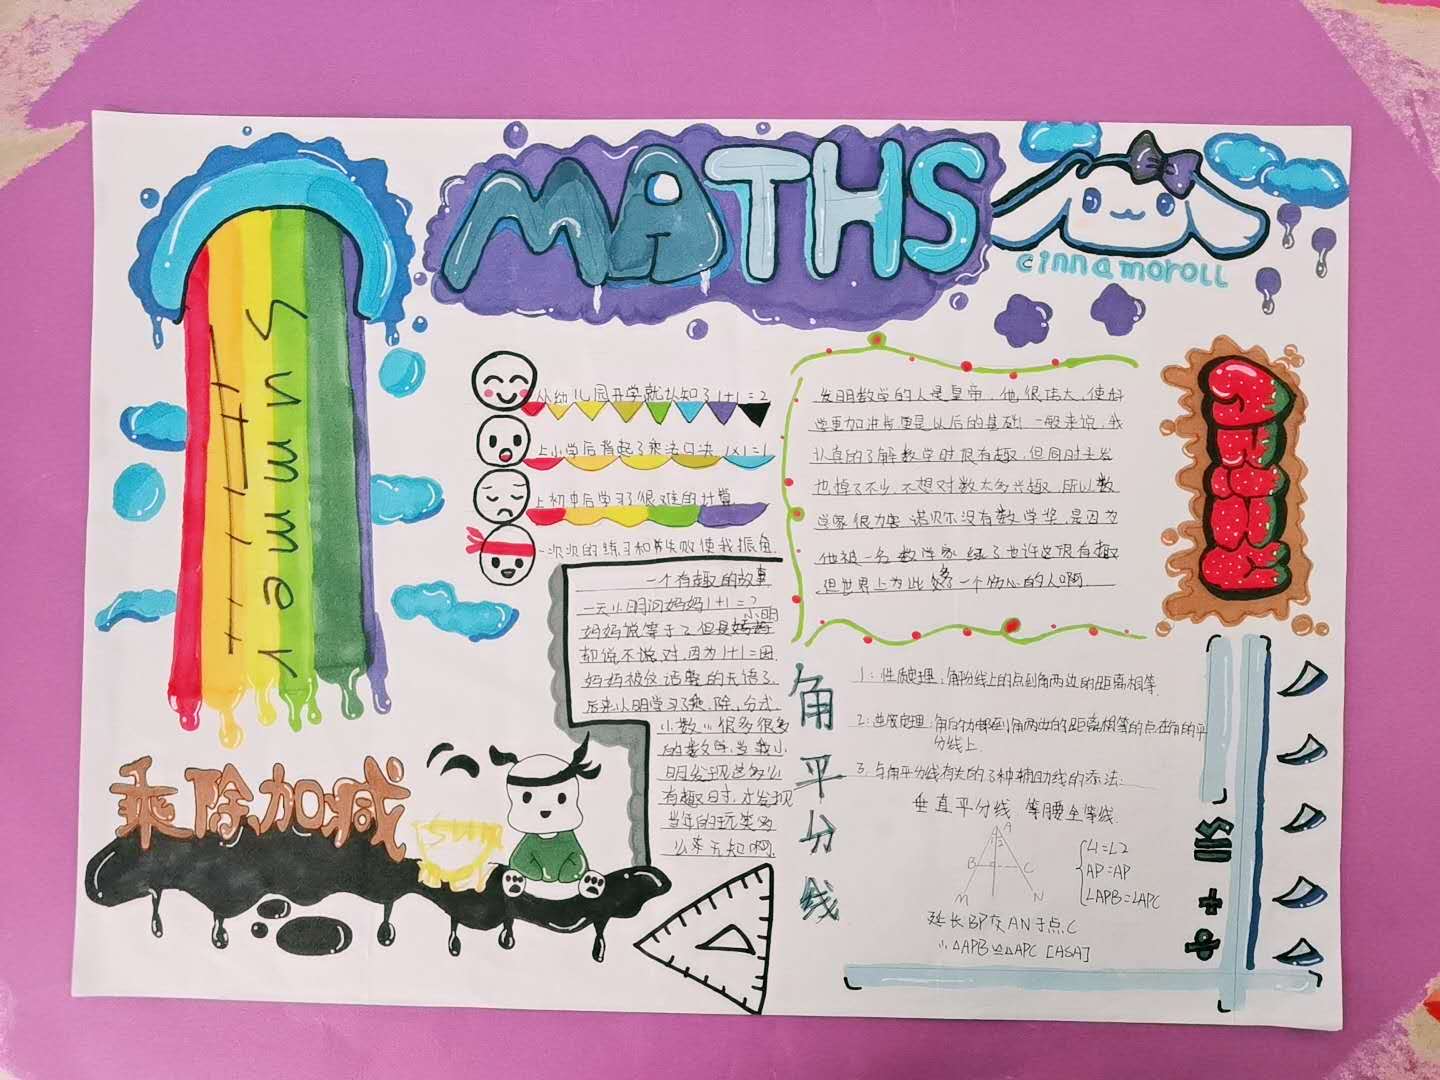 MATHS
cinnamoroll
Summer
从幼儿园开学就认知了1+1=2
上小学后背起了乘法口决 1x1=1
上初中后学习了很难的计算
一次次的练习和失败使我振奋
发明数学的人是皇帝，他很伟大，使科
学更加进步，更是以后的基础，一般来说，我
认真的了解数学时很有趣，但同时头发
也掉了不少，不想对数太多兴趣，所以数
学家很力害 诺贝尔没有数学奖，是因为
他被一名数学家 绿了也许这很有趣
但世界上为此 多一个伤心的人啊
一个有趣的故事
一天小明问妈妈1+1=?
妈妈说等于2，但是小明
却说不说，对，因为1+1=田
妈妈被这话整的无语了，
后来小明学习了乘，除，分式
小数，很多很多
的数学，当小
明发现这多么
有趣时，才发现
当年的玩笑多
么来无知啊，
角平分线
1：性质定理：角分线上的点到角两边的距离相等
2：定理：角的内部到角两边的距离相等的点在角的平
分线上
3：与角平分线有关的3种辅助线的添法：
垂直平分线 等腰全等线
A
1 2
B C
M N
∠1=∠2
AP=AP
∠APB=∠APC
延长BP交AN于点C
∴△APB≌△APC [ASA]
乘除加减
+
÷